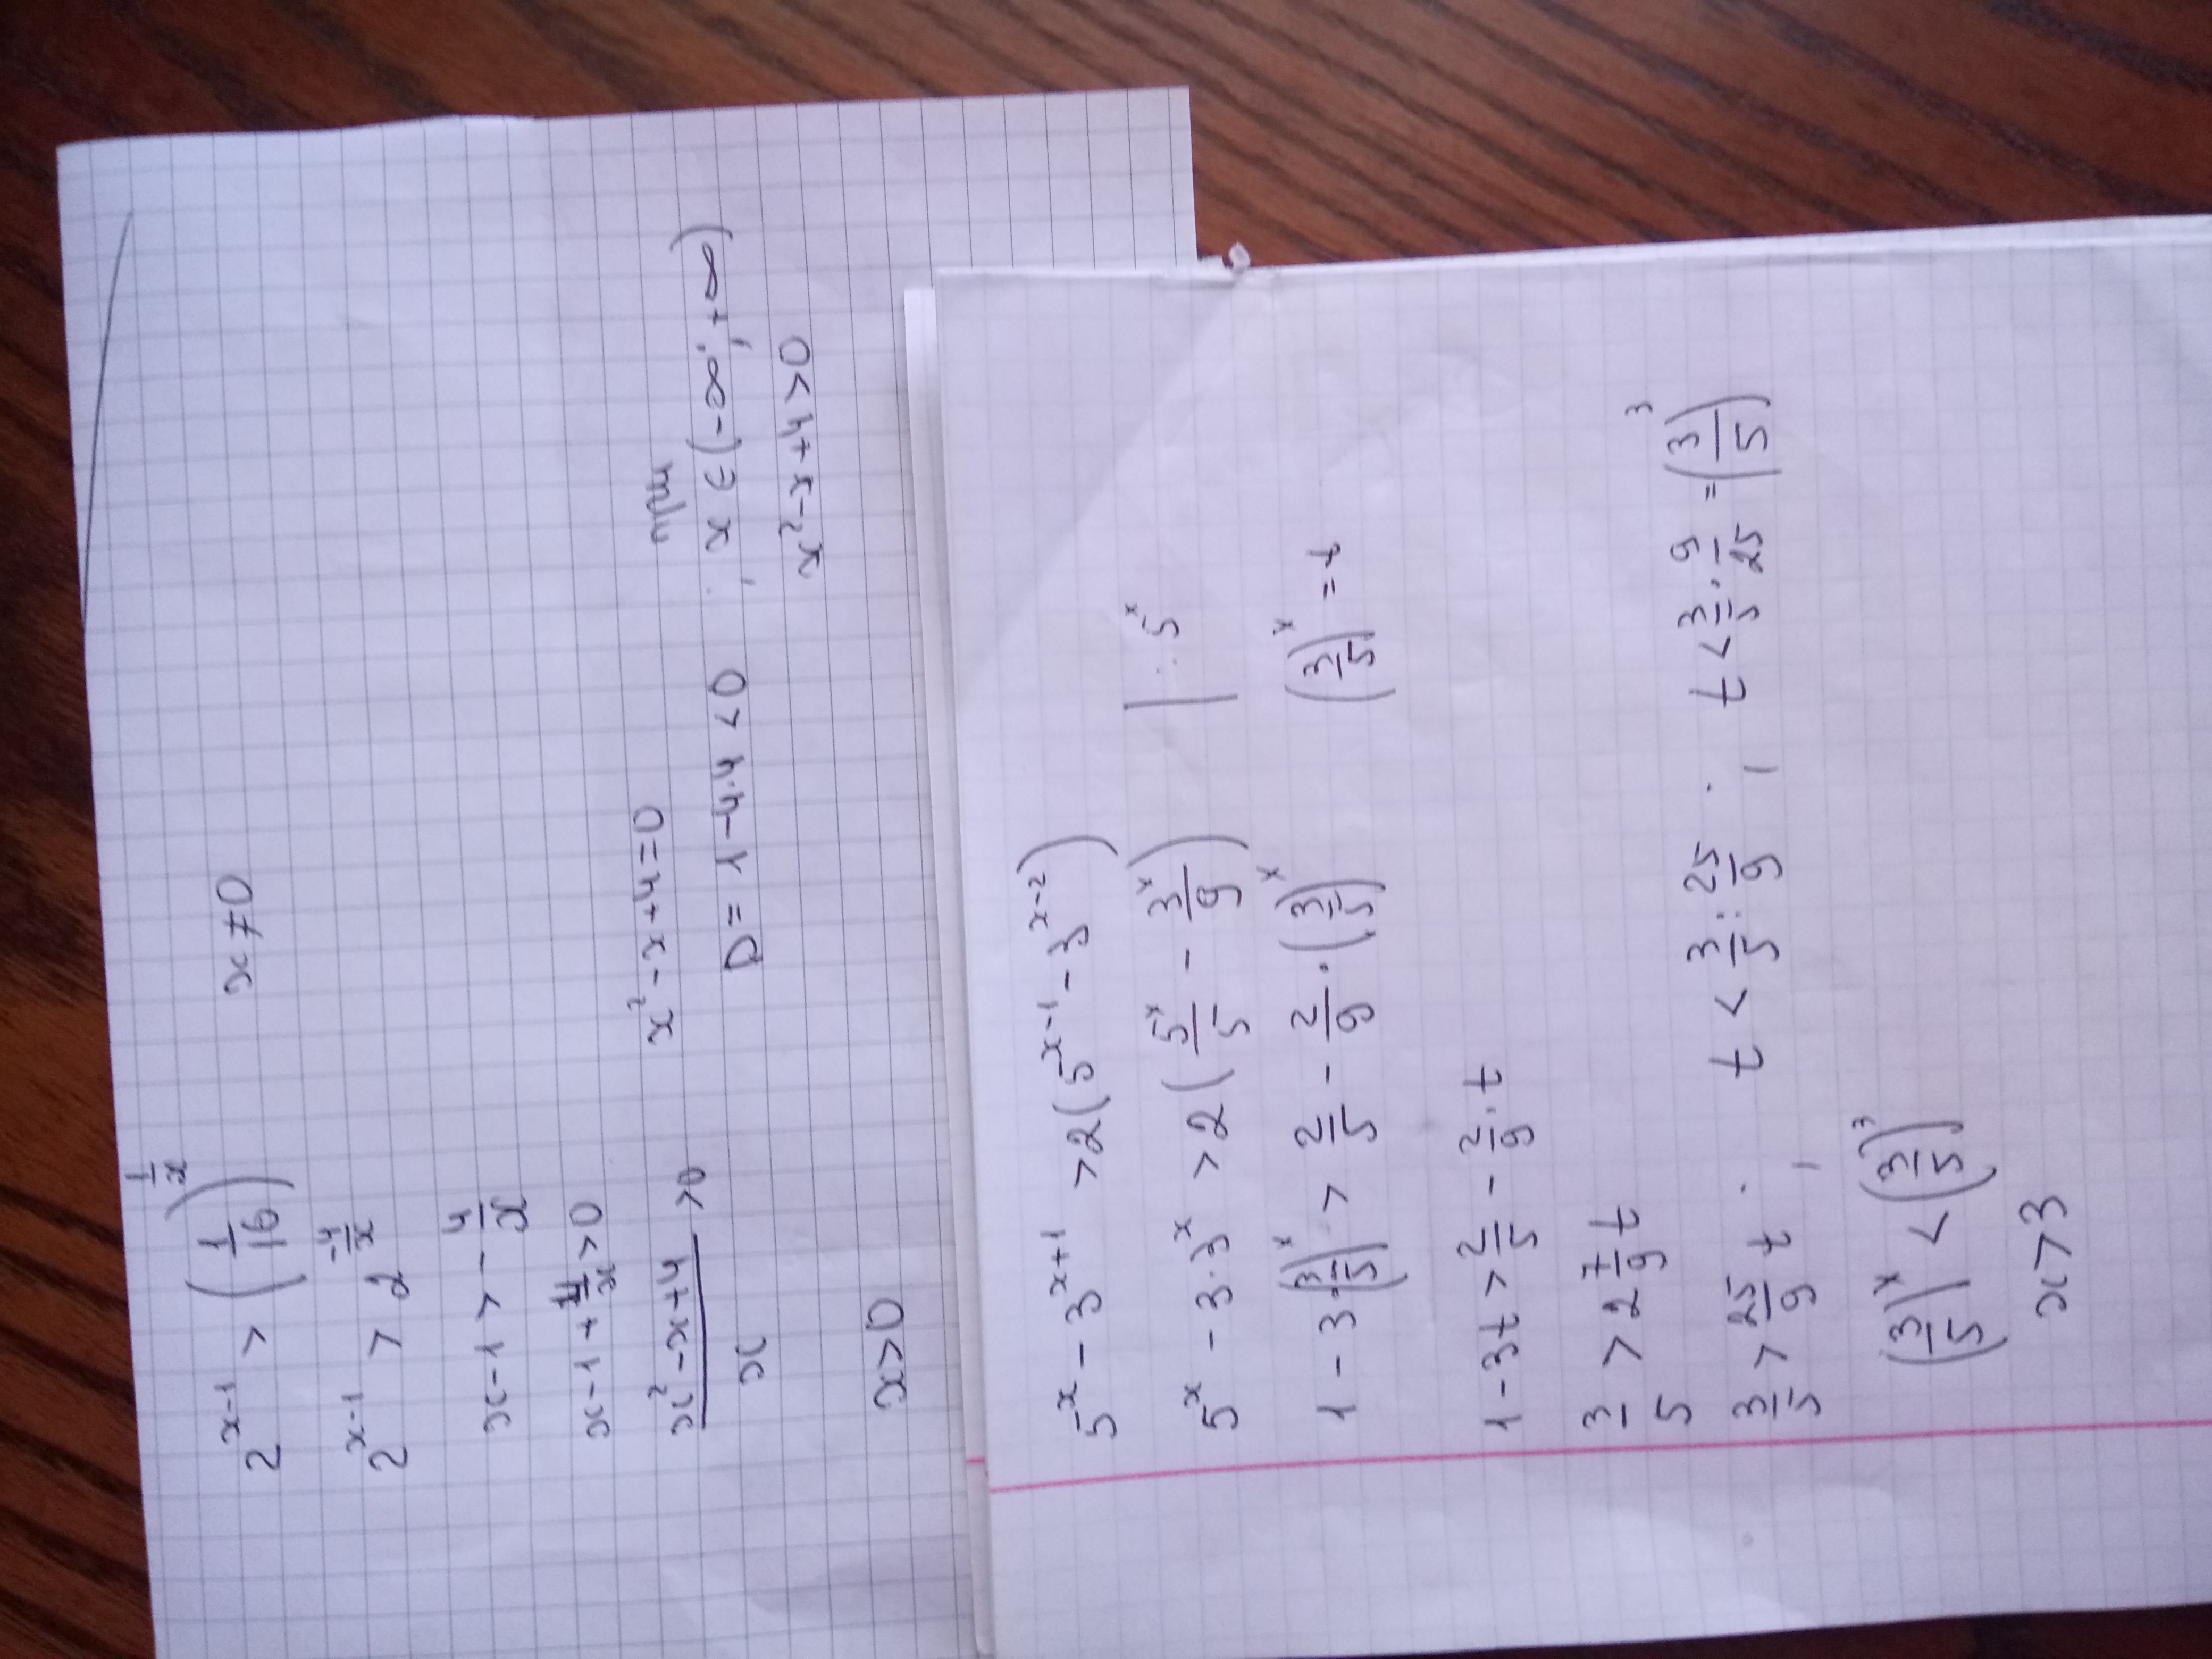 2^{x-1} > (1/16)^{1/x} x ≠ 0
2^{x-1} > 2^{-4/x}
x-1 > -4/x
x-1+4/x > 0
(x²-x+4)/x > 0 x²-x+4=0
D = 1-4·4 < 0; при x ∈ (-∞; +∞)
x²-x+4>0
x>0
5^x - 3^{x+1} > 2(5^{x-1} - 3^{x-2})
5^x - 3·3^x > 2(5^x/5 - 3^x/9) | : 5^x
1 - 3·(3/5)^x > 2/5 - 2/9·(3/5)^x (3/5)^x = t
1-3t > 2/5 - 2/9·t
3/5 > 2 7/9 t
3/5 > 25/9 t; t < 3/5 : 25/9; t < 3/5 · 9/25 = (3/5)^3
(3/5)^x < (3/5)^3
x>3